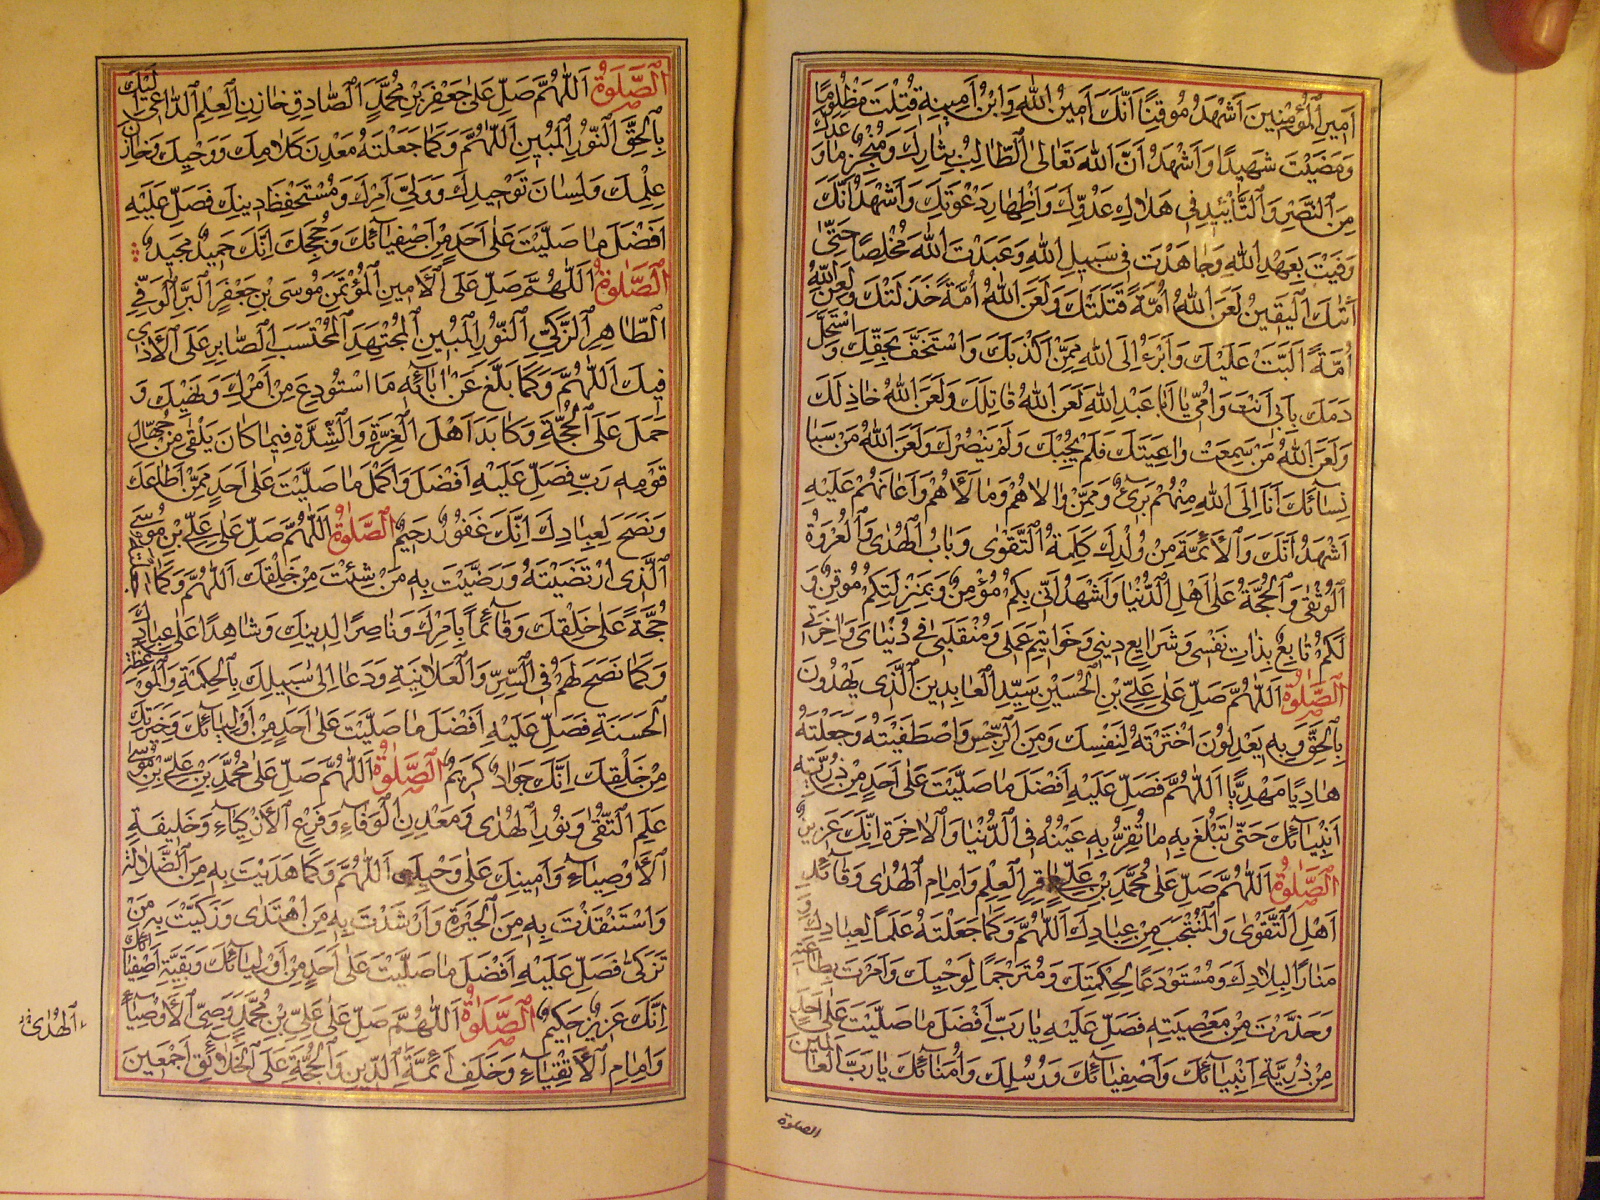 اَمِيرِ الْمُؤْمِنِينَ اَشْهَدُ مُوقِنًا اَنَّكَ اَمِينُ اللهِ وَابْنُ اَمِينِهِ قُتِلْتَ مَظْلُومًا
وَمَضَيْتَ شَهِيدًا وَاَشْهَدُ اَنَّ اللهَ تَعَالٰى الطَّالِبُ بِثَارِكَ وَمُنْجِزٌ مَا وَعَدَكَ
مِنَ النَّصْرِ وَالتَّأْيِيدِ فِي هَلَاكِ عَدُوِّكَ وَاِظْهَارِ دَعْوَتِكَ وَاَشْهَدُ اَنَّكَ
وَفَيْتَ بِعَهْدِ اللهِ وَجَاهَدْتَ فِي سَبِيلِ اللهِ وَعَبَدْتَ اللهَ مُخْلِصًا حَتّٰى
اَتٰىكَ الْيَقِينُ لَعَنَ اللهُ اُمَّةً قَتَلَتْكَ وَلَعَنَ اللهُ اُمَّةً خَذَلَتْكَ وَلَعَنَ اللهُ
اُمَّةً اَلَّبَتْ عَلَيْكَ وَاَبْرَءُ اِلَى اللهِ مِمَّنْ اَكْذَبَكَ وَاسْتَخَفَّ بِحَقِّكَ وَاسْتَحَلَّ
دَمَكَ بِاَبِي اَنْتَ وَاُمِّي يَا اَبَا عَبْدِ اللهِ لَعَنَ اللهُ قَاتِلَكَ وَلَعَنَ اللهُ خَاذِلَكَ
وَلَعَنَ اللهُ مَنْ سَمِعَتْ وَاعِيَتَكَ فَلَمْ يُجِبْكَ وَلَمْ يَنْصُرْكَ وَلَعَنَ اللهُ مَنْ سَبَا
نِسَائَكَ اَنَا اِلَى اللهِ مِنْهُمْ بَرِيءٌ وَمِمَّنْ وَالَاهُمْ وَمَالَأَهُمْ وَاَعَانَهُمْ عَلَيْهِ
اَشْهَدُ اَنَّكَ وَالْاَئِمَّةَ مِنْ وُلْدِكَ كَلِمَةُ التَّقْوٰى وَبَابُ الْهُدٰى وَالْعُرْوَةُ
الْوُثْقٰى وَالْحُجَّةُ عَلٰى اَهْلِ الدُّنْيَا وَاَشْهَدُ اَنِّي بِكُمْ مُؤْمِنٌ وَبِمَنْزِلَتِكُمْ مُوقِنٌ وَ
لَكُمْ تَابِعٌ بِذَاتِ نَفْسِي وَشَرَايِعِ دِينِي وَخَوَاتِيمِ عَمَلِي وَمُنْقَلَبِي فِي دُنْيَايَ وَاٰخِرَتِي
الصَّلٰوةُ اَللّٰهُمَّ صَلِّ عَلٰى عَلِيِّ بْنِ الْحُسَيْنِ سَيِّدِ الْعَابِدِينَ الَّذِي يَهْدُونَ
بِالْحَقِّ وَبِهِ يَعْدِلُونَ اخْتَرْتَهُ لِنَفْسِكَ وَمِنَ الرِّجْسِ وَاصْطَفَيْتَهُ وَجَعَلْتَهُ
هَادِيًا مَهْدِيًّا اَللّٰهُمَّ فَصَلِّ عَلَيْهِ اَفْضَلَ مَا صَلَّيْتَ عَلٰى اَحَدٍ مِنْ ذُرِّيَّتِهِ
اَنْبِيَائِكَ حَتّٰى تَبْلُغَ بِهِ مَا تُقِرُّ بِهِ عَيْنُهُ فِي الدُّنْيَا وَالْاٰخِرَةِ اِنَّكَ عَزِيزٌ
الصَّلٰوةُ اَللّٰهُمَّ صَلِّ عَلٰى مُحَمَّدِ بْنِ عَلِيٍّ بَاقِرِ الْعِلْمِ وَاِمَامِ الْهُدٰى وَقَائِدِ
اَهْلِ التَّقْوٰى وَالْمُنْتَجَبِ مِنْ عِبَادِكَ اَللّٰهُمَّ وَكَمَا جَعَلْتَهُ عَلَمًا لِعِبَادِكَ وَ
مَنَارًا لِبِلَادِكَ وَمُسْتَوْدَعًا لِحِكْمَتِكَ وَمُتَرْجِمًا لِوَحْيِكَ وَاَمَرْتَ بِطَاعَتِهِ
وَحَذَّرْتَ مِنْ مَعْصِيَتِهِ فَصَلِّ عَلَيْهِ يَا رَبِّ اَفْضَلَ مَا صَلَّيْتَ عَلٰى اَحَدٍ
مِنْ ذُرِّيَّةِ اَنْبِيَائِكَ وَاَصْفِيَائِكَ وَرُسُلِكَ وَاُمَنَائِكَ يَا رَبَّ الْعَالَمِينَ
الصلوة
الصَّلٰوةُ اَللّٰهُمَّ صَلِّ عَلٰى جَعْفَرِ بْنِ مُحَمَّدٍ الصَّادِقِ خَازِنِ الْعِلْمِ الدَّاعِي اِلَيْكَ
بِالْحَقِّ النُّورِ الْمُبِينِ اَللّٰهُمَّ وَكَمَا جَعَلْتَهُ مَعْدِنَ كَلَامِكَ وَوَحْيِكَ وَخَازِنَ
عِلْمِكَ وَلِسَانَ تَوْحِيدِكَ وَوَلِيَّ اَمْرِكَ وَمُسْتَحْفِظَ دِينِكَ فَصَلِّ عَلَيْهِ
اَفْضَلَ مَا صَلَّيْتَ عَلٰى اَحَدٍ مِنْ اَصْفِيَائِكَ وَحُجَجِكَ اِنَّكَ حَمِيدٌ مَجِيدٌ
الصَّلٰوةُ اَللّٰهُمَّ صَلِّ عَلَى الْاَمِينِ الْمُؤْتَمَنِ مُوسَى بْنِ جَعْفَرٍ الْبَرِّ الْوَفِيِّ
الطَّاهِرِ الزَّكِيِّ النُّورِ الْمُبِينِ الْمُجْتَهِدِ الْمُحْتَسِبِ الصَّابِرِ عَلَى الْاَذٰى
فِيكَ اَللّٰهُمَّ وَكَمَا بَلَّغَ عَنْ اٰبَائِهِ مَا اسْتُودِعَ مِنْ اَمْرِكَ وَنَهْيِكَ وَ
حَمَلَ عَلَى الْمَحَجَّةِ وَكَابَدَ اَهْلَ الْعِزَّةِ وَالشِّدَّةِ فِيمَا كَانَ يَلْقٰى مِنْ جُهَّالِ
قَوْمِهِ رَبِّ فَصَلِّ عَلَيْهِ اَفْضَلَ وَاَكْمَلَ مَا صَلَّيْتَ عَلٰى اَحَدٍ مِمَّنْ اَطَاعَكَ
وَنَصَحَ لِعِبَادِكَ اِنَّكَ غَفُورٌ رَحِيمٌ الصَّلٰوةُ اَللّٰهُمَّ صَلِّ عَلٰى عَلِيِّ بْنِ مُوسٰى
الَّذِي ارْتَضَيْتَهُ وَرَضَّيْتَ بِهِ مَنْ شِئْتَ مِنْ خَلْقِكَ اَللّٰهُمَّ وَكَمَا
حُجَّةً عَلٰى خَلْقِكَ وَقَائِمًا بِاَمْرِكَ وَنَاصِرًا لِدِينِكَ وَشَاهِدًا عَلٰى عِبَادِكَ
وَكَمَا نَصَحَ لَهُمْ فِي السِّرِّ وَالْعَلَانِيَةِ وَدَعَا اِلٰى سَبِيلِكَ بِالْحِكْمَةِ وَالْمَوْعِظَةِ
الْحَسَنَةِ فَصَلِّ عَلَيْهِ اَفْضَلَ مَا صَلَّيْتَ عَلٰى اَحَدٍ مِنْ اَوْلِيَائِكَ وَخِيَرَتِكَ
مِنْ خَلْقِكَ اِنَّكَ جَوَادٌ كَرِيمٌ الصَّلٰوةُ اَللّٰهُمَّ صَلِّ عَلٰى مُحَمَّدِ بْنِ عَلِيِّ بْنِ مُوسٰى
عَلَمِ التُّقٰى وَنُورِ الْهُدٰى وَمَعْدِنِ الْوَفَاءِ وَفَرْعِ الْاَزْكِيَاءِ وَخَلِيفَةِ
الْاَوْصِيَاءِ وَاَمِينِكَ عَلٰى وَحْيِكَ اَللّٰهُمَّ وَكَمَا هَدَيْتَ بِهِ مِنَ الضَّلَالَةِ
وَاسْتَنْقَذْتَ بِهِ مِنَ الْحَيْرَةِ وَاَرْشَدْتَ بِهِ مَنِ اهْتَدٰى وَزَكَّيْتَ بِهِ مَنْ
تَزَكّٰى فَصَلِّ عَلَيْهِ اَفْضَلَ مَا صَلَّيْتَ عَلٰى اَحَدٍ مِنْ اَوْلِيَائِكَ وَبَقِيَّةِ اَصْفِيَائِكَ
اِنَّكَ عَزِيزٌ حَكِيمٌ الصَّلٰوةُ اَللّٰهُمَّ صَلِّ عَلٰى عَلِيِّ بْنِ مُحَمَّدٍ وَصِيِّ الْاَوْصِيَاءِ
وَاِمَامِ الْاَتْقِيَاءِ وَخَلَفِ اَئِمَّةِ الدِّينِ وَالْحُجَّةِ عَلَى الْخَلَائِقِ اَجْمَعِينَ
الْهُدٰى